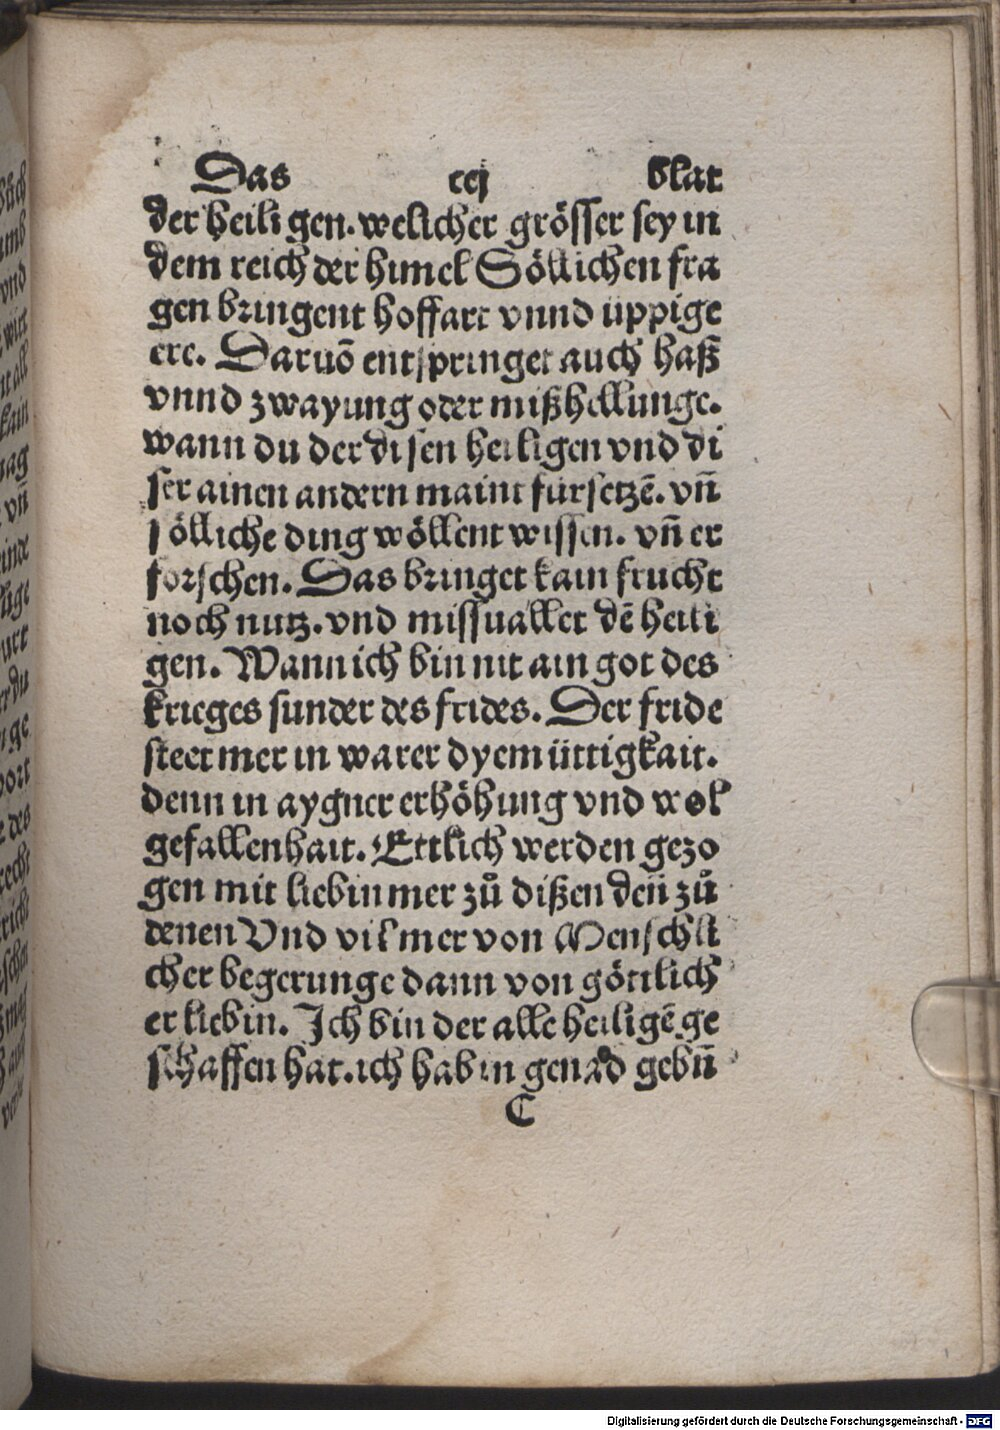 Das ccj blat
der heili gen. welicher grösser sey in
dem reich der himel Söllichen fra
gen bringent hoffart vnnd üppige
ere. Daruõ entspringet auch haß
vnnd zwayung oder mißhellunge.
wann du der disen heiligen vnd di
ser ainen andern maint fürsetzẽ. vñ
söllliche ding wöllent wissen. vñ er
forschen. Das bringet kain frucht
noch nutz. vnd missuallet dẽ heili
gen. Wann ich bin nit ain got des
krieges sunder des frides. Der fride
steet mer in warer dyemüttigkait.
denn in aygner erhöhung vnd wol
gefallenhait. Ettlich werden gezo
gen mit liebin mer zů dißen deñ zů
denen Vnd vil mer von Menschli
cher begerunge dann von göttlich
er liebin. Ich bin der alle heiligẽ ge
schaffen hat. ich hab in genad gebñ
C
Digitalisierung gefördert durch die Deutsche Forschungsgemeinschaft - DFG